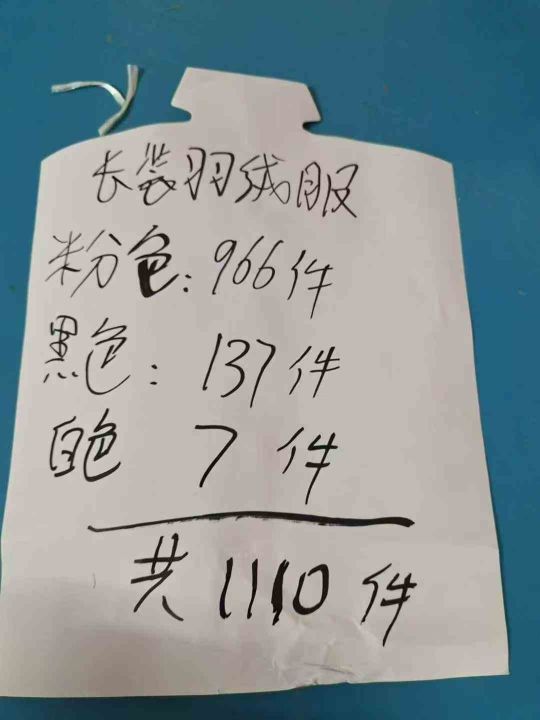 长装羽绒服
粉色:966件
黑色:137件
白色 7件
共1110件